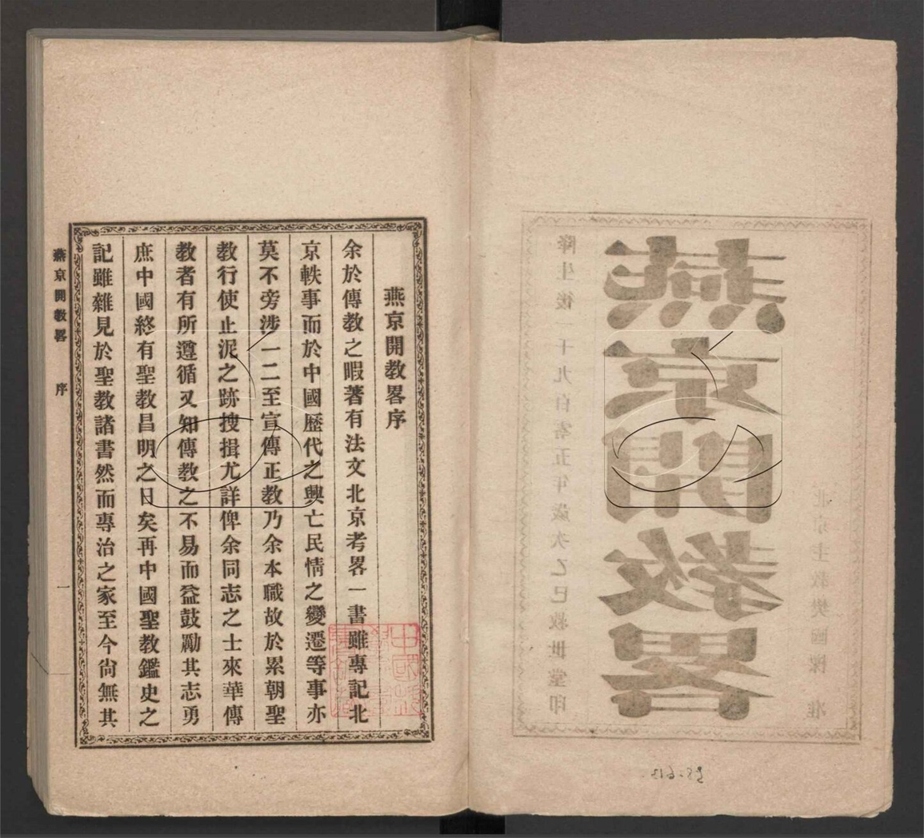 燕京開教畧序
余於傳教之暇著有法文北京考畧一書雖專記北
京軼事而於中國歷代之興亡民情之變遷等事亦
莫不旁涉一二至宣傳正教乃余本職故於累朝聖
教行使止泥之跡搜揖尤詳俾余同志之士來華傳
教者有所遵循又知傳教之不易而益鼓勵其志勇
庶中國終有聖教昌明之日矣再中國聖教鑑史之
記雖雜見於聖教諸書然而專治之家至今尚無其
燕京開教畧 序 一
降生後一千九百零五年歲次乙巳救世堂印
燕京開教畧
北京主教樊國樑 准